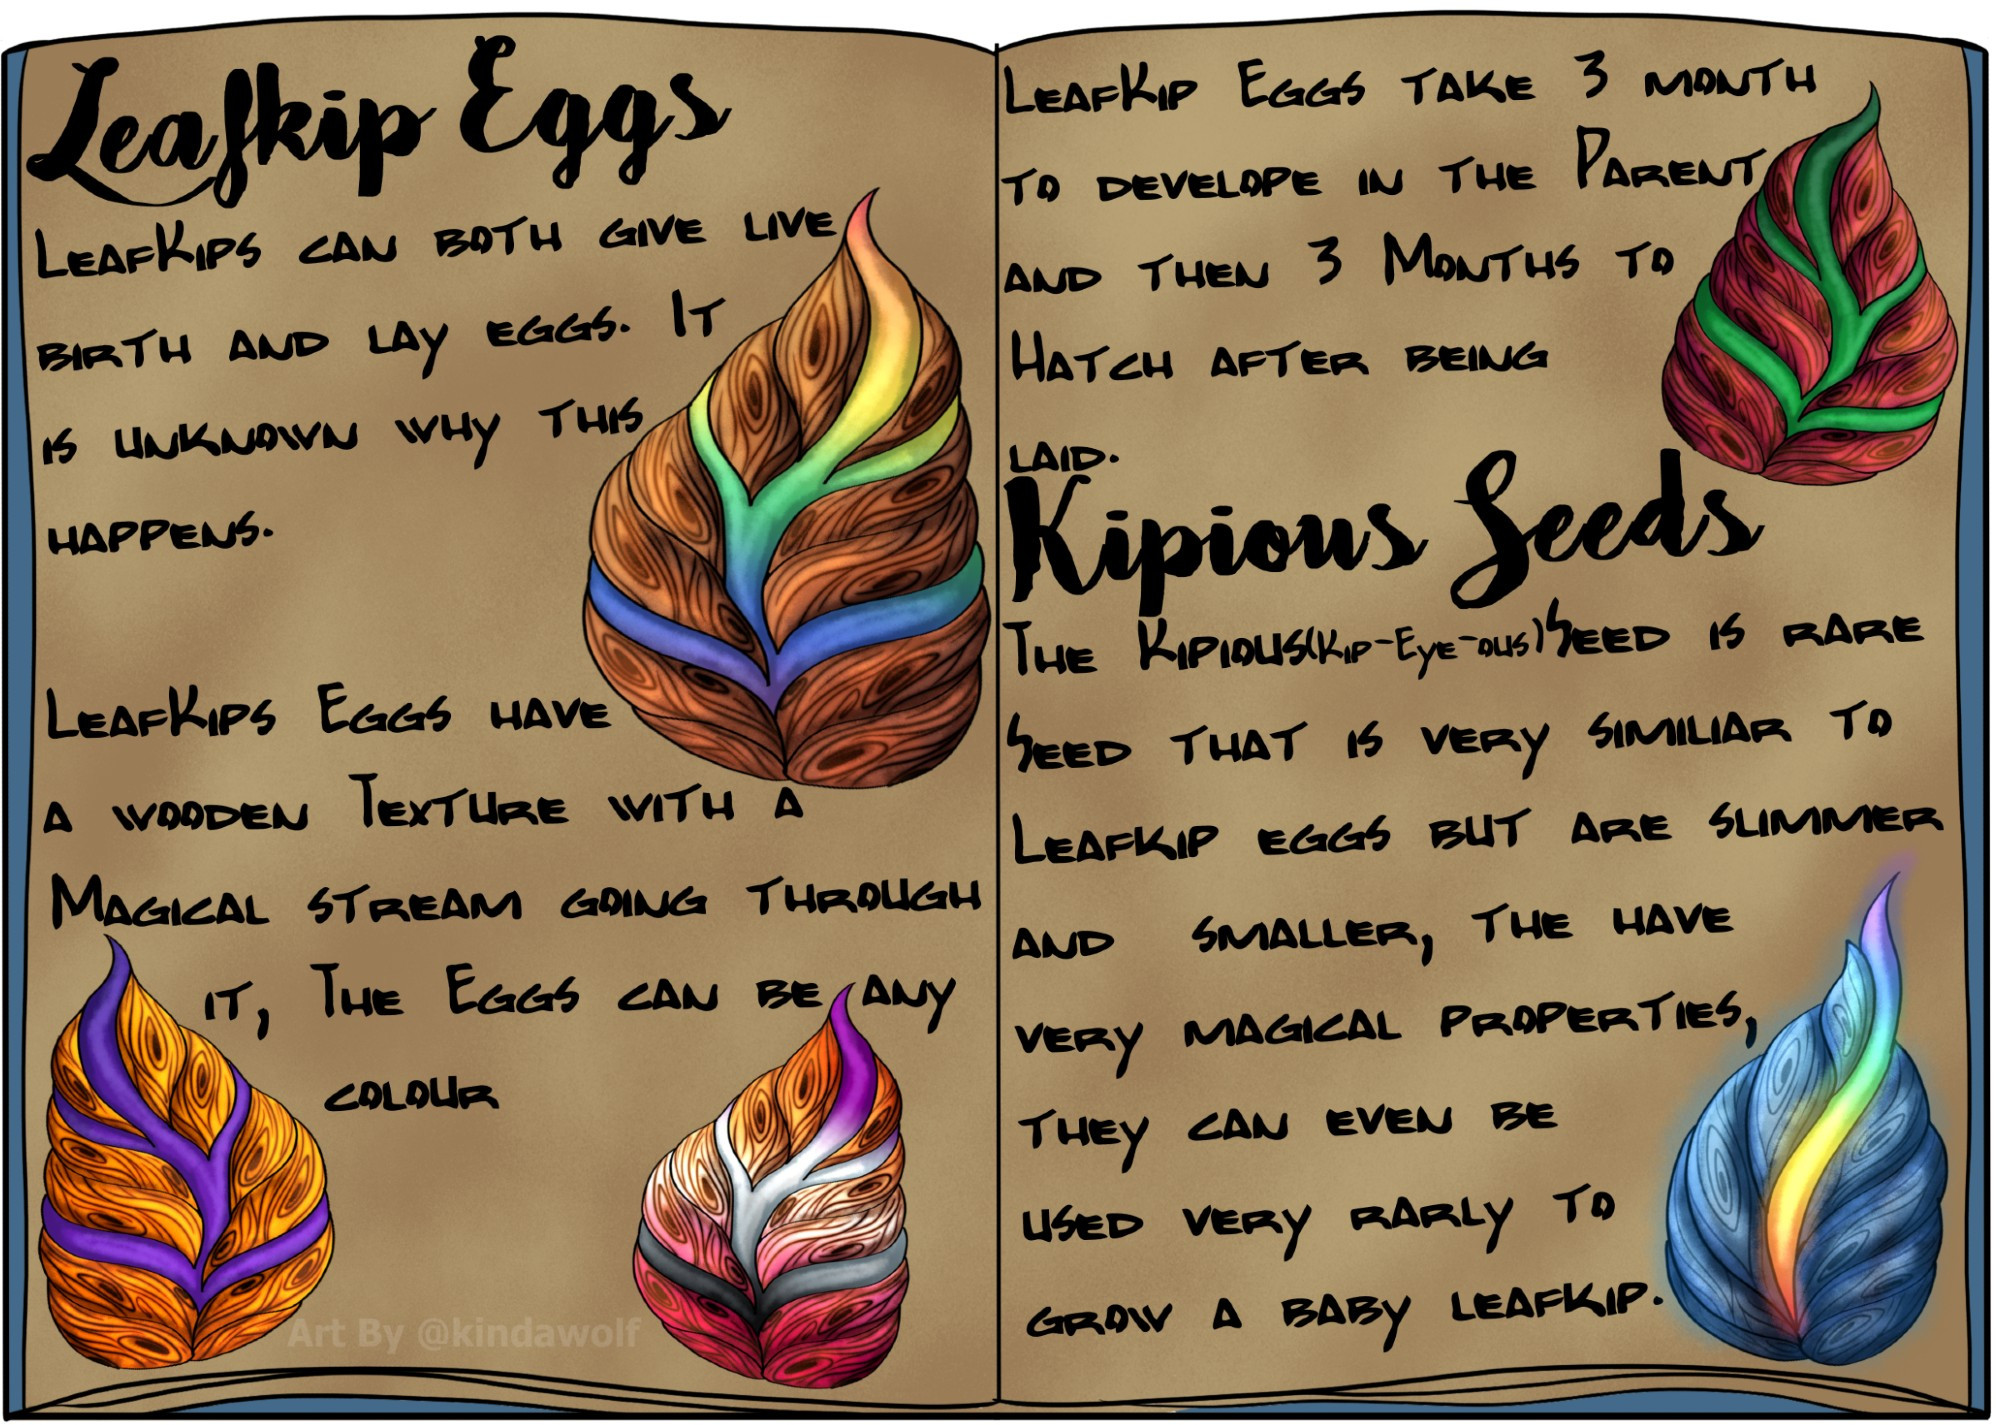 Leafkip Eggs
LeafKips can both give live
birth and lay eggs. It
is unknown why this
happens.
LeafKips Eggs have
a wooden Texture with a
Magical stream going through
it, The Eggs can be any
colour
Art By @kindawolf
LeafKip Eggs take 3 month
to develope in the Parent
and then 3 Months to
Hatch after being
laid.
Kipious Seeds
The Kipious(Kip-Eye-ous)Seed is rare
Seed that is very similiar to
Leafkip eggs but are slimmer
and smaller, the have
very magical properties,
they can even be
used very rarly to
grow a baby leafkip.